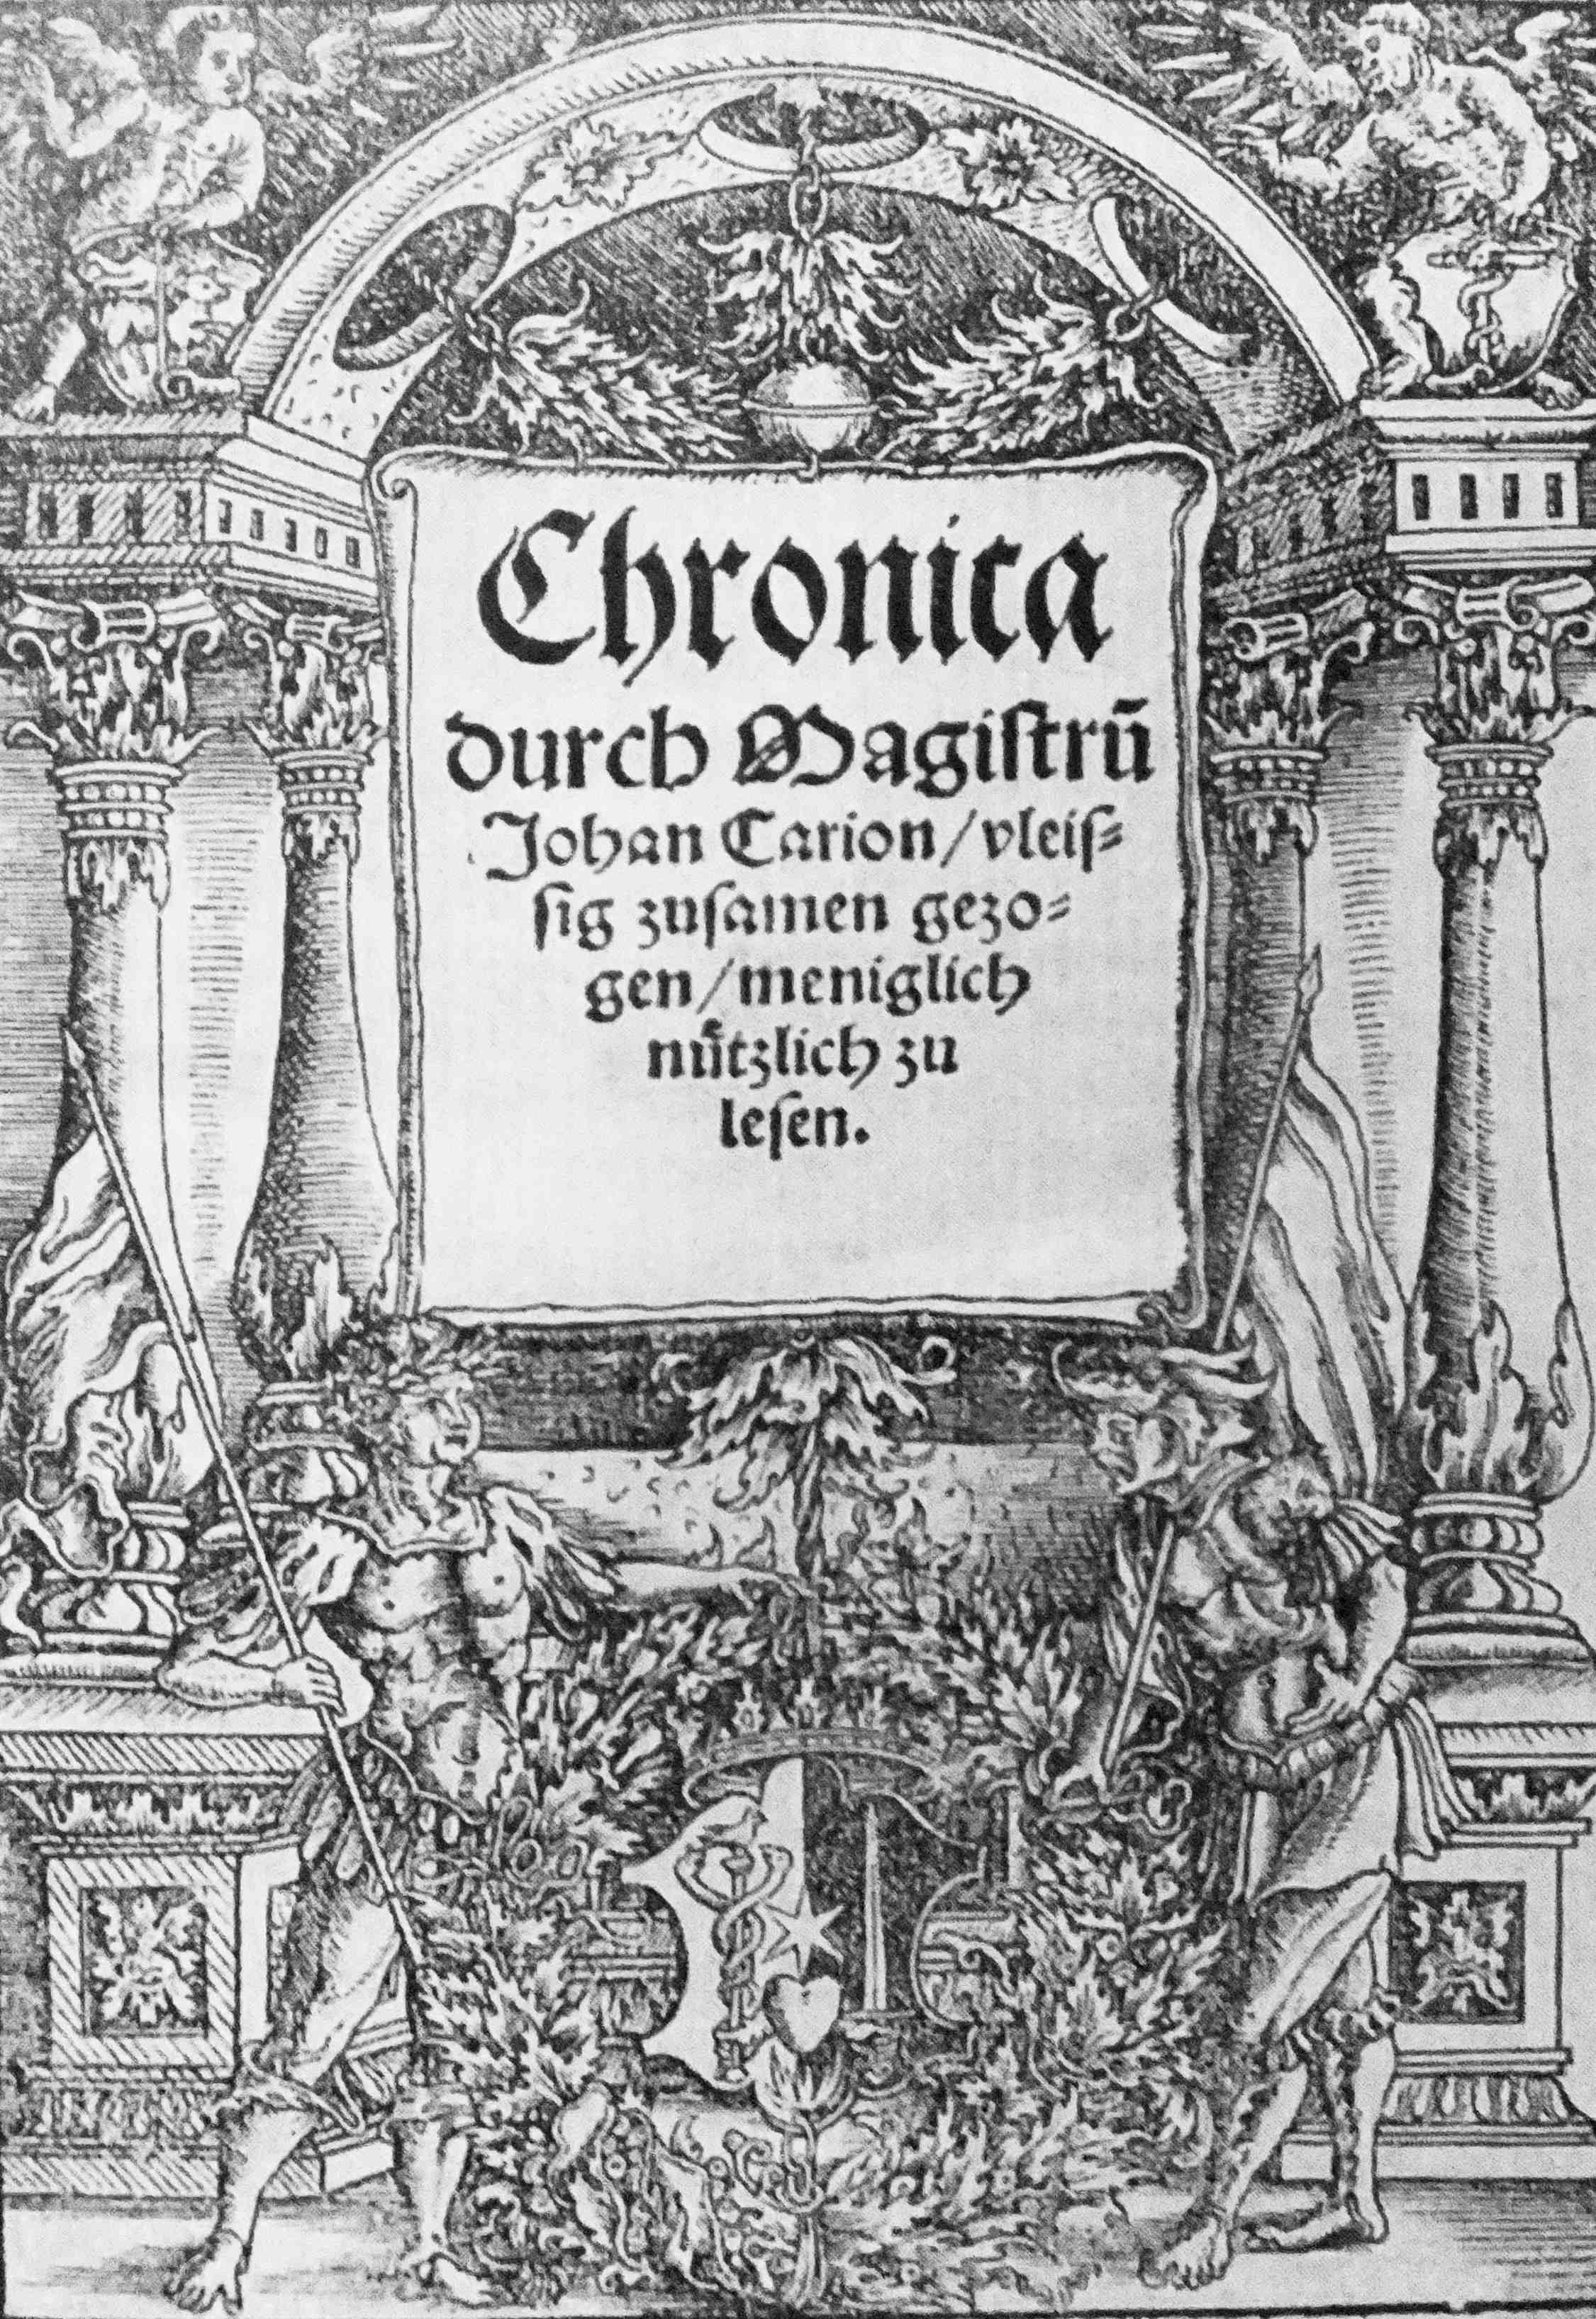 Chronica
durch Magiſtrū
Johan Carion/vleiſ⸗
ſig zuſamen gezo⸗
gen/meniglich
nuͤtzlich zu
leſen.